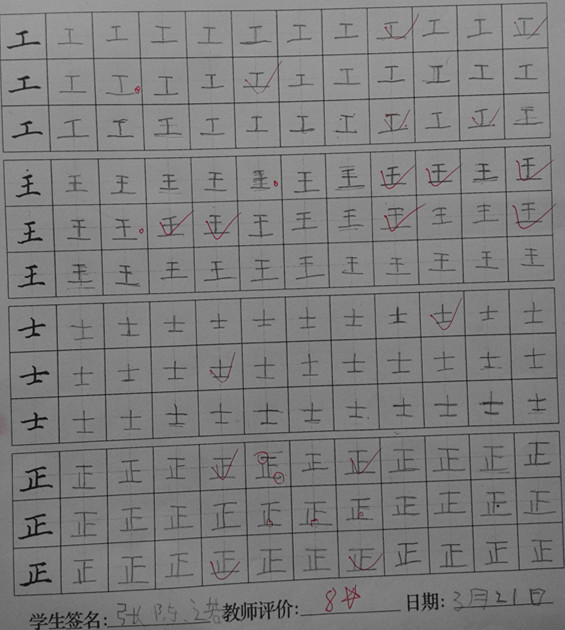 工工工工工工工工工工工工
工工工工工工工工工工工工
工工工工工工工工工工工工
王王王王王王王王王王王王
王王王王王王王王王王王王
王王王王王王王王王王王王
士士士士士士士士士士士士
士士士士士士士士士士士士
士士士士士士士士士士士士
正正正正正正正正正正正正
正正正正正正正正正正正正
正正正正正正正正正正正正
学生签名: 张 教师评价: 8☆ 日期: 3月21日